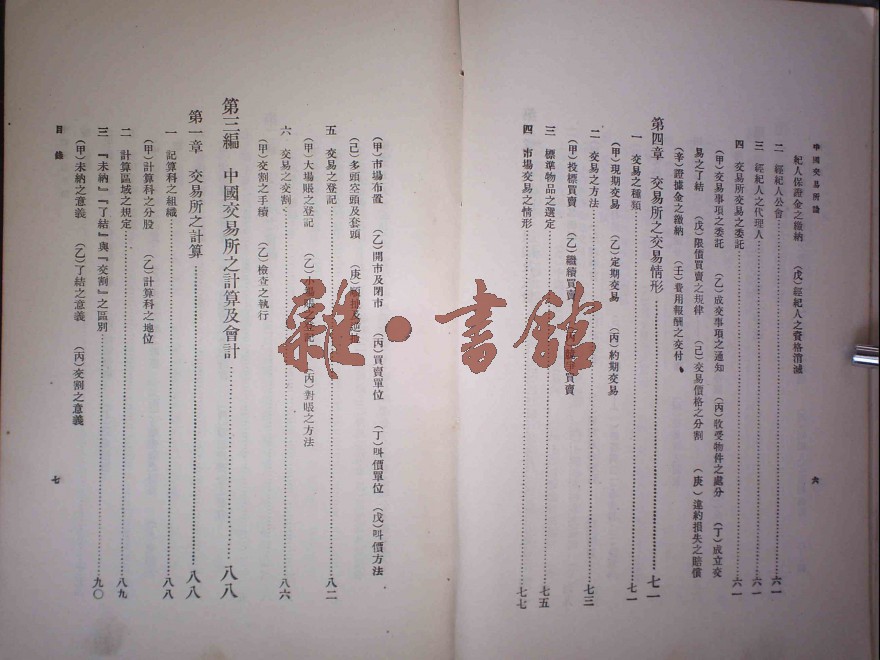 中國交易所論
紀人保證金之繳納 (戊)經紀人之資格消滅
二 經紀人公會……六一
三 經紀人之代理人……六一
四 交易所交易之委託……六一
(甲)交易事項之委託 (乙)成交事項之通知 (丙)收受物件之處分 (丁)成立交
易之了結 (戊)限價買賣之規律 (己)交易價格之分割 (庚)違約損失之賠償
(辛)證據金之繳納 (壬)費用報酬之交付
第四章 交易所之交易情形……七一
一 交易之種類……七一
(甲)現期交易 (乙)定期交易 (丙)約期交易
二 交易之方法……七三
(甲)投標買賣 (乙)繼續買賣 買賣
三 標準物品之選定……七五
四 市場交易之情形……七七
六
(甲)市場布置 (乙)開市及閉市 (丙)買賣單位 (丁)叫價單位 (戊)叫價方法
(己)多頭空頭及套頭 (庚)
五 交易之登記……八二
(甲)大場賬之登記 (乙)小場賬之登記 (丙)對賬之方法
六 交易之交割……八六
(甲)交割之手續 (乙)檢查之執行
第三編 中國交易所之計算及會計……八八
第一章 交易所之計算……八八
一 記算科之組織……八八
(甲)計算科之分股 (乙)計算科之地位
二 計算區域之規定……八九
三 『未納』『了結』與『交割』之區別……九〇
(甲)未納之意義 (乙)了結之意義 (丙)交割之意義
目錄
七
雜·書館